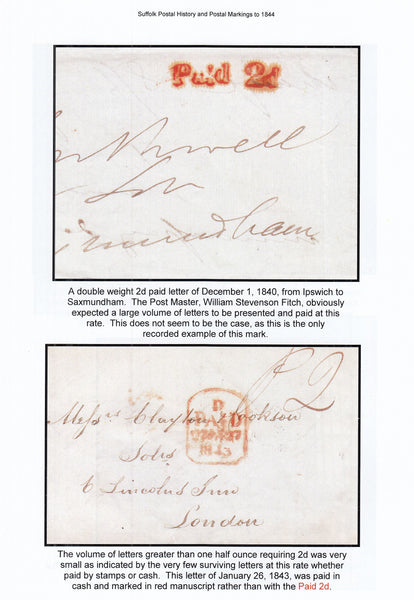 Suffolk Postal History and Postal Markings to 1844
Paid 2d
A double weight 2d paid letter of December 1, 1840, from Ipswich to
Saxmundham. The Post Master, William Stevenson Fitch, obviously
expected a large volume of letters to be presented and paid at this
rate. This does not seem to be the case, as this is the only
recorded example of this mark.
P 2
D
PAID
1843
Messrs Clayton & Cookson
Solrs
6 Lincolns Inn
London
The volume of letters greater than one half ounce requiring 2d was very
small as indicated by the very few surviving letters at this rate whether
paid by stamps or cash. This letter of January 26, 1843, was paid in
cash and marked in red manuscript rather than with the Paid 2d.